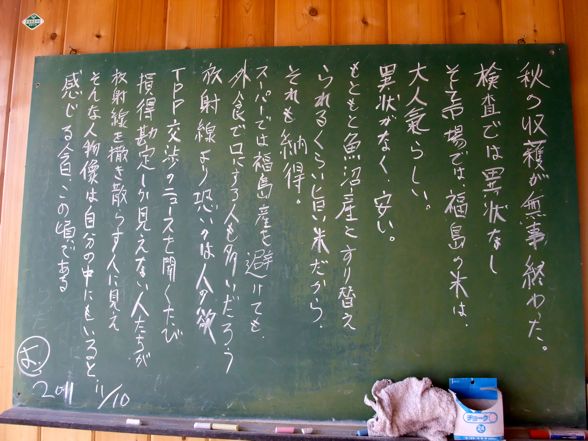 秋の収穫が無事終わった。
検査では異状なし
そして市場では、福島の米は、
大人気らしい。
異状がなく、安い。
もともと魚沼産とすり替え
られるくらい旨い米だから、
それも納得。
スーパーでは福島産を避けても、
外食で口にする人も多いだろう
放射線より恐いのは人の欲
TPP交渉のニュースを聞くたび
損得勘定しか見えない人たちが
放射線を撒き散らす人に見え
そんな人物像は自分の中にもいると、
感じる今日この頃である
2011 11/10
チョーク
24